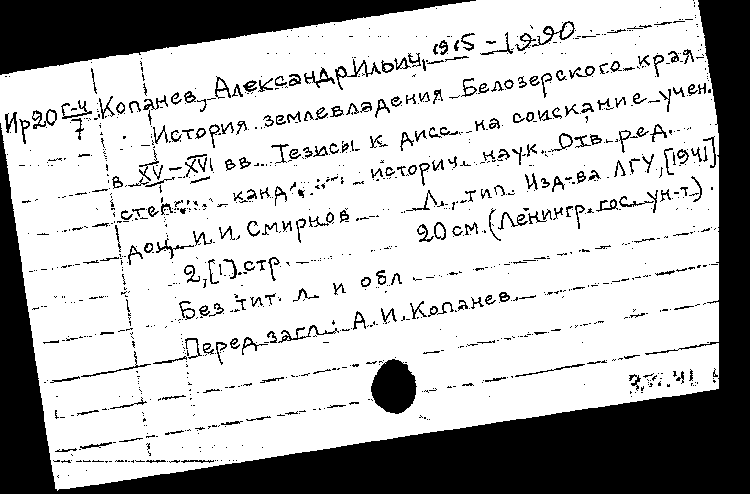 Ир20 Г-4/7 Копанев, Александр Ильич, 1915-1990
История землевладения Белозерского края
в XV-XVI вв. Тезисы к дисс. на соискание учен.
степени канд. историч. наук. Отв. ред.
доц. И. И. Смирнов. Л., тип. Изд-ва ЛГУ, [1941].
2, [1] стр. 20 см. (Ленингр. гос. ун-т).
Без тит. л. и обл.
Перед загл.: А. И. Копанев